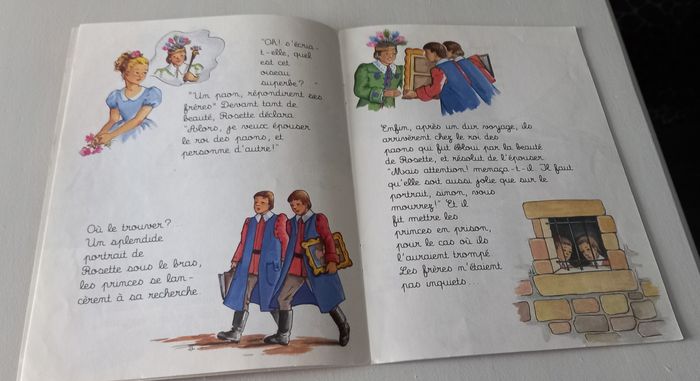 "Oh! s'écria-
t-elle, quel
est cet
oiseau
superbe? "
"Un paon, répondirent ses
frères" Devant tant de
beauté, Rosette déclara
"Alors, je veux épouser
le roi des paons, et
personne d'autre!"
Où le trouver?
Un splendide
portrait de
Rosette sous le bras,
les princes se lan-
cèrent à sa recherche.
Enfin, après un dur voyage, ils
arrivèrent chez le roi des
paons qui fut ébloui par la beauté
de Rosette, et résolut de l'épouser
"Mais attention! menaça-t-il. Il faut
qu'elle soit aussi jolie que sur le
portrait, sinon, vous
mourrez!" Et il
fit mettre les
princes en prison,
pour le cas où ils
l'auraient trompé.
Les frères n'étaient
pas inquiets...